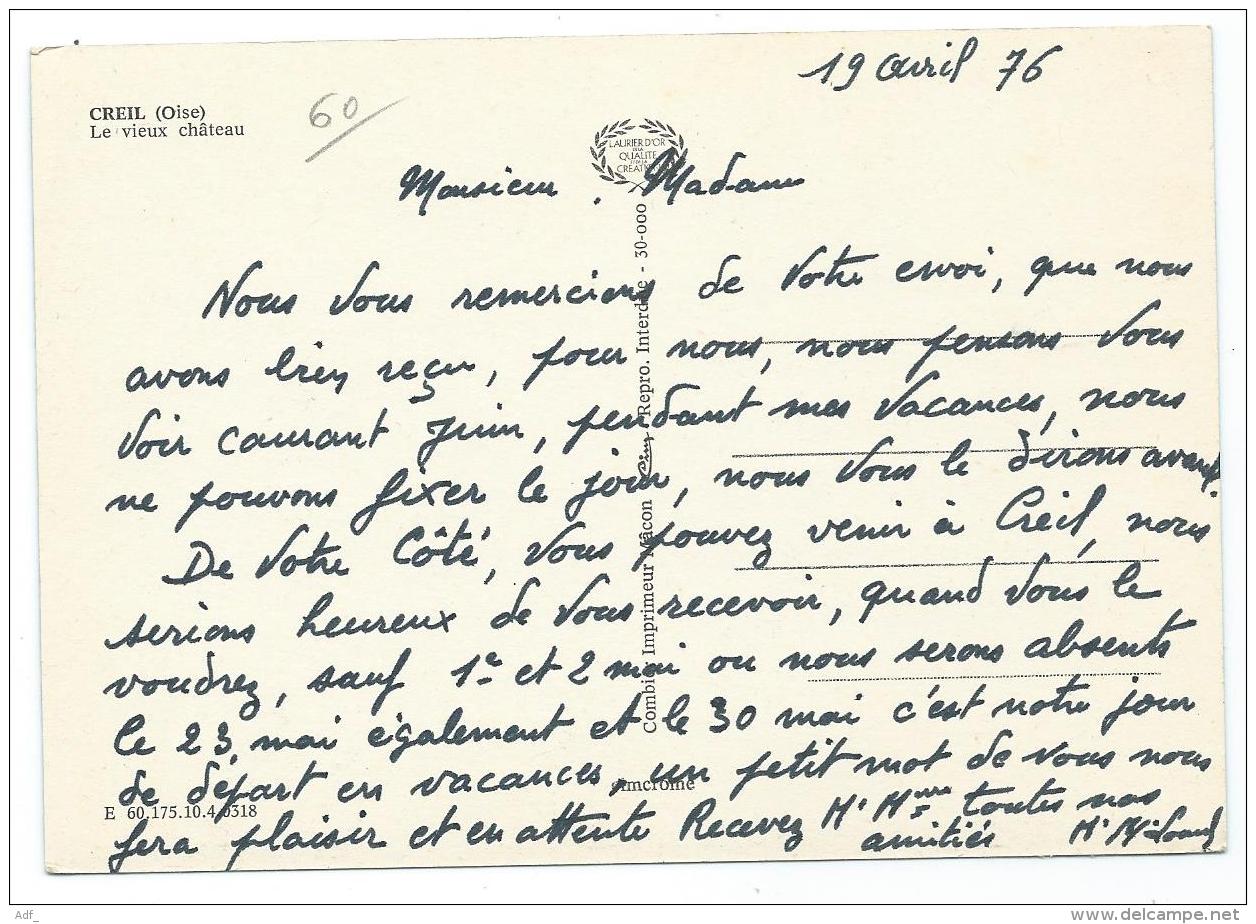 19 avril 76
CREIL (Oise)
Le vieux château
60
LAURIER D'OR
DE LA
QUALITÉ
ET DE LA
CREAT
Monsieur, Madame
Nous vous remercions de votre envoi, que nous
avons bien reçu, pour nous, nous pensons vous
voir courant Juin, pendant mes vacances, nous
ne pouvons fixer le jour, nous vous le dirons avant.
De votre Côté, vous pouvez venir à Creil, nous
serions heureux de vous recevoir, quand vous le
voudrez, sauf 1e et 2 mai ou nous serons absents
le 23 mai également et le 30 mai c'est notre jour
de départ en vacances, un petit mot de vous nous
fera plaisir et en attente Recevez Mr Mme toutes nos
amitiés Mr Me
Combier Imprimeur Mâcon Cim Repro. Interdite - 30-000
cimcrome
E 60.175.10.4.0318
Adf_
http://www.delcampe.net